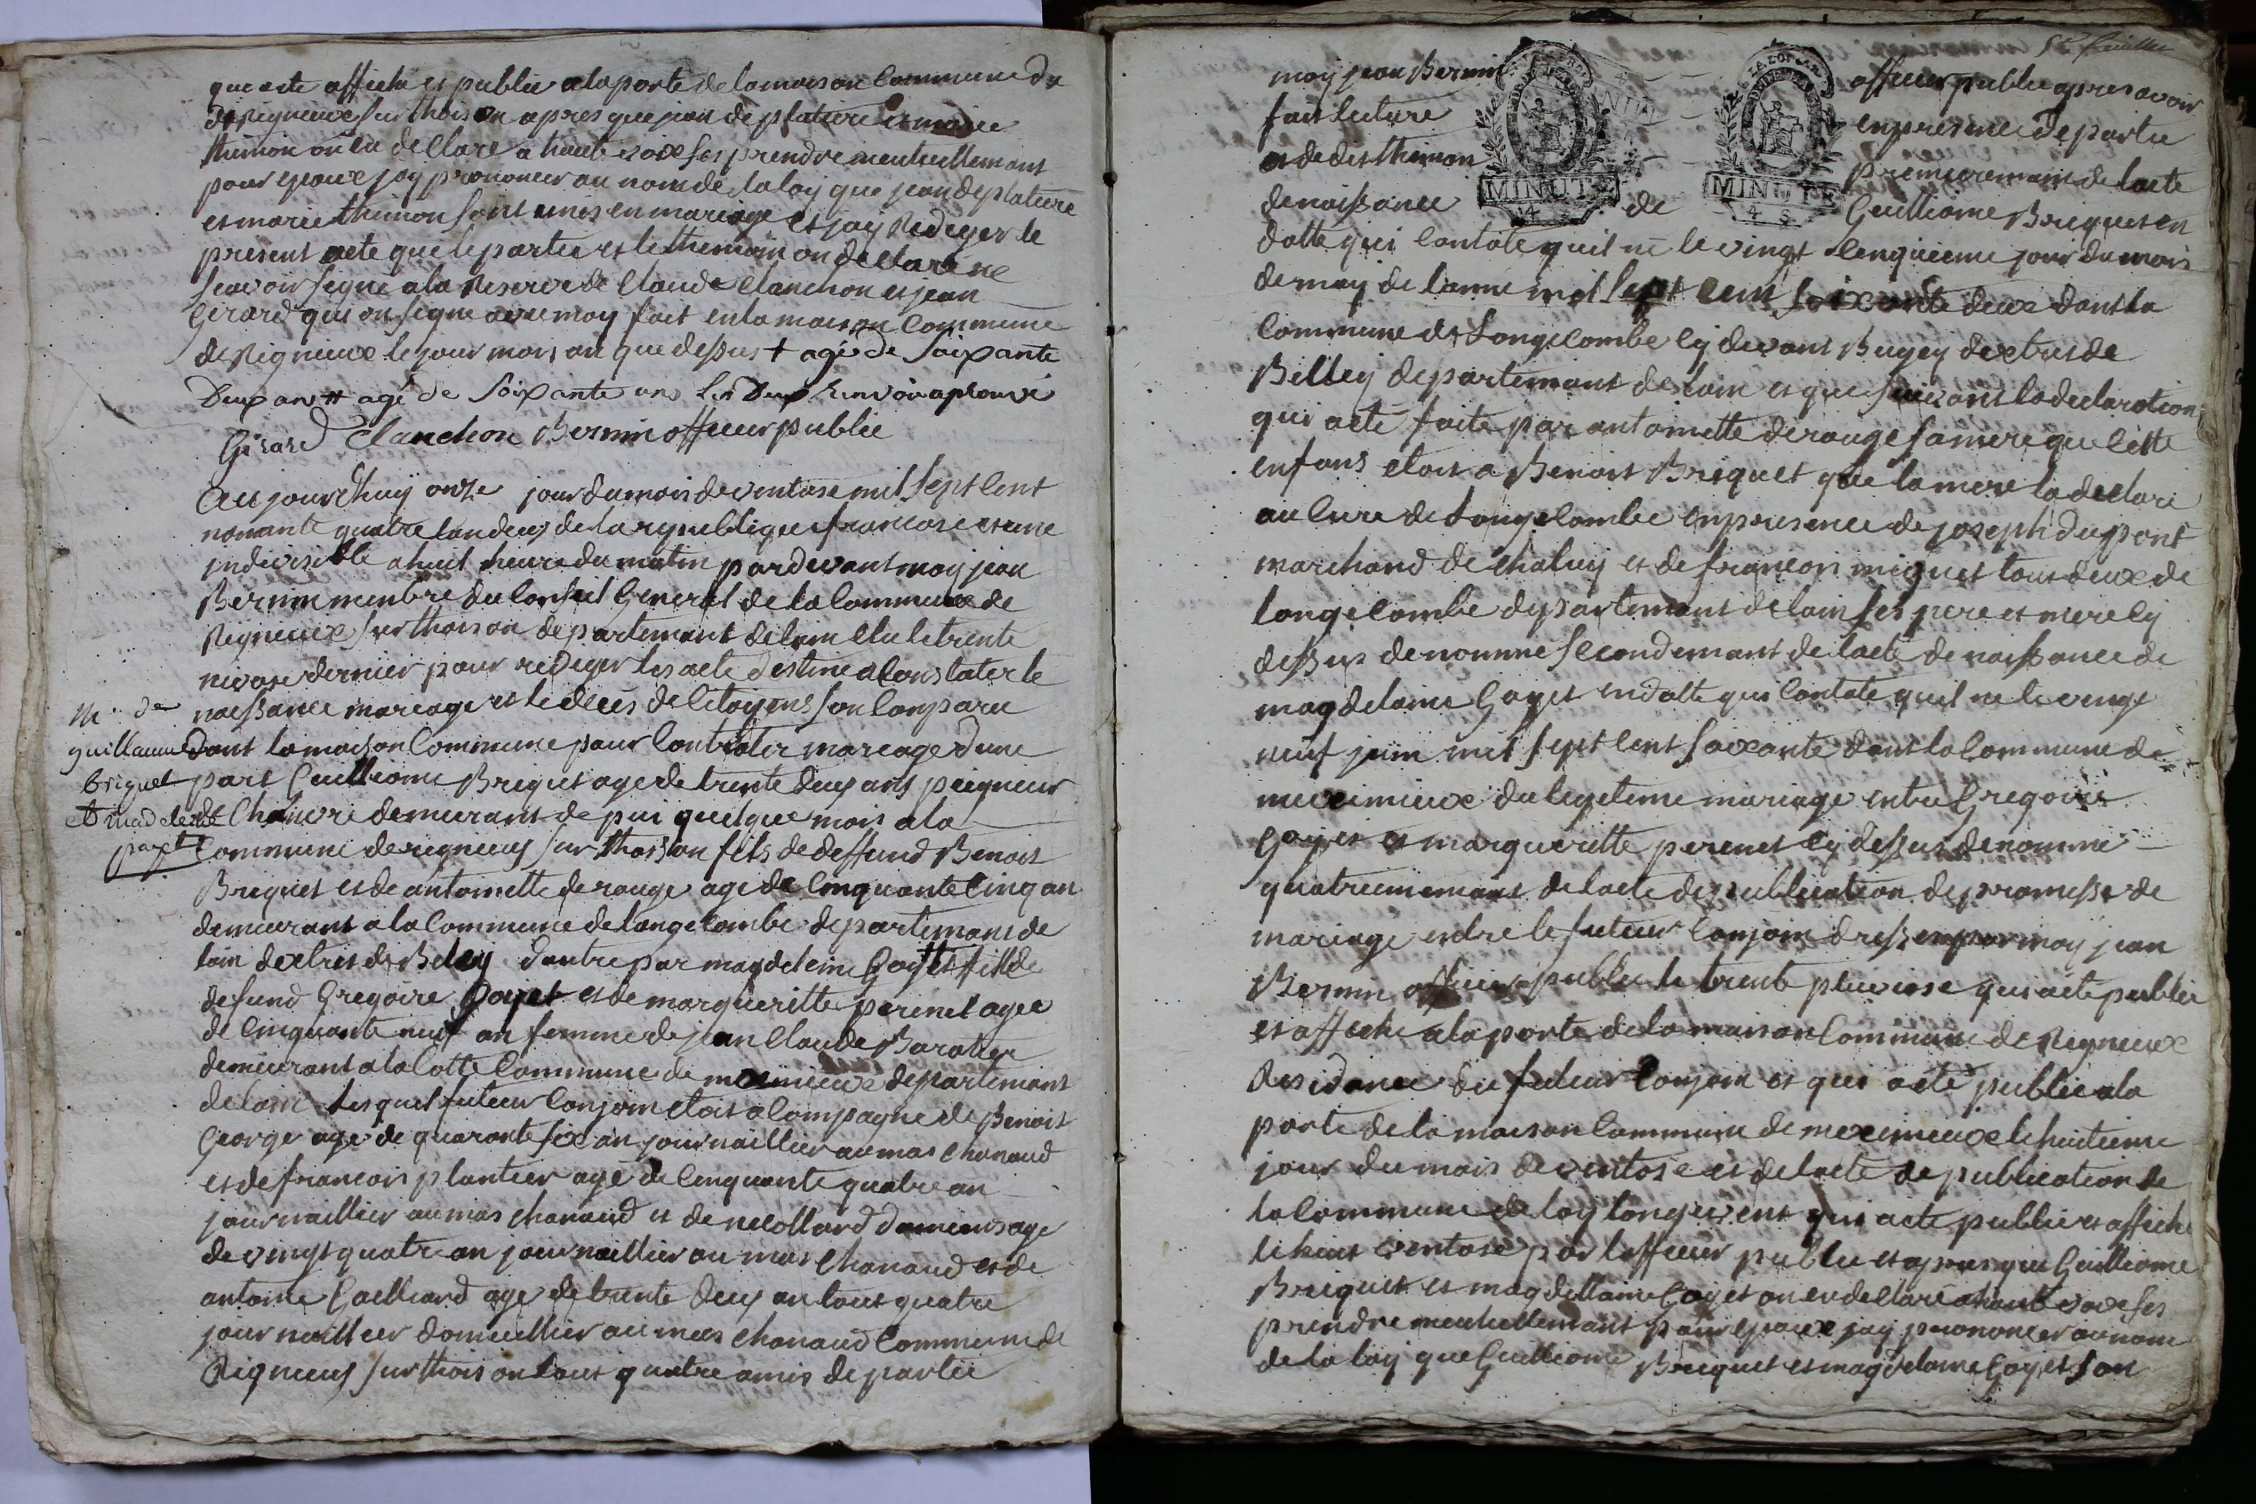 que acte affiché et publié a la porte de la maison Commune du
de Rigneux sur thoison apres que jean deplatiere et marie
themon on eu declare a haute voix ses prendre meutuellemant
pour epoux jay prononcer au nom de la loy que jean deplatiere
et marie themon sont unis en mariage et jay Rediger le
present acte que le partie et le themoin on declare ne
scavoir signe a la Reserve de Claude Clanchon et jean
Gerard qui on signe avec moy fait en la maison Commune
de Rigneux le jour mois an que dessus + agé de Soixante
Deux an # agé de Soixante ans les Deux Renvoi aprouvé
Gerard Clanchon Bernin officier public
Aujourdhuy onze jour du mois de ventose mil sept cent
nonante quatre lan deux de la republique francoise et une
indivisible a huit heure du matin pardevant moy jean
Bernin membre du Conseil General de la Commune de
Rigneux sur thoison departemant de lain elu le trente
nivose dernier pour rediger les acte destine a Constater le
naissance mariage et le deces de Citoyens son Conparu
M. de
guillaume
briquet
et madeleine
gayet
dant la maison Commune pour Contrater mariage dune
part Guilliome Briquet age de trente deux ans peigneur
de Chanvre demeurant de pui quelque mois a la
Commune de rigneux sur thoison fils de deffund Benoit
Briquet et de antoinette de rouge age de Cinquante Cinq an
demeurant a la Commune de longecombe departemans de
lain dextrit de Beley dautre par magdeleine Goyet fille de
defund Gregoire Goyet et de margueritte perenet agee
de Cinquante neuf an femme de jean Claude Baratier
demeurant a la Cotte Commune de meximieux departemant
de lain lesquel futeur Conjoin etoit aCompagne de Benoit
George age de quarante six an journaillier au mas Chanaud
et de francois plantier age de Cinquante quatre an
journaillier au mas Chanaud et de
de vingt quatre an journaillier au mas Chanaud et de
antoine Gailliard age de trente deux an tout quatre
journaillier domicillier au mas Chanaud Commune de
Rigneux sur thoison tout quatre amis de partie
moy jean Bernin officier public apres avoir
fait lecture en presence de partie
et de dis themon premieremant de lacte
de naissance de Guilliome Briquet en
MINUTE
4 S
MINUTE
4 S
datte qui Contate quil ne le vingt Cenquieme jour du mois
de may de lanne mil sept cens soixante deux dant la
Commune de Longecombe Cy devant Bugey dextrit de
Belley departemant de lain et que suivant la declaration
qui a eté faite par antoinette de rouge sa mere que Cette
enfans etoit a Benoit Briquet que la mere la declaré
au Cure de Longecombe en presence de joseph dupont
marchand de Chaley et de francois miguet tous deux de
longecombe departemant de lain ses pere et mere Cy
dessus denomme secondemant de lacte de naissance de
magdelaine Goyet en datte qui Contate quil ne le vingt
neuf juin mil sept cent soixante dans la Commune de
meximieux du legeteme mariage entre Gregoire
Goyet et margueritte perenet cy dessus denommé
quatriememant de lacte de publication de promesse de
mariage entre le futeur Conjoin par moy jean
Bernin officier public le trente pluviose qui a ete publie
et affiche a la porte de la maison Commune de Rigneux
Residance du futeur Conjoin et qui a eté publié a la
porte de la maison Commune de meximieux le huitieme
jour du mois de ventose et de lacte de publication de
la Commune de qui a ete publié et affiche
le huit ventose par lofficier public et apres que Guilliome
Briquet et magdellaine Goyet on eu declaré a haute voix ses
prendre meutuellemant pour epoux jay prononcer au nom
de la loy que Guilliome Briquet et magdelaine Goyet son